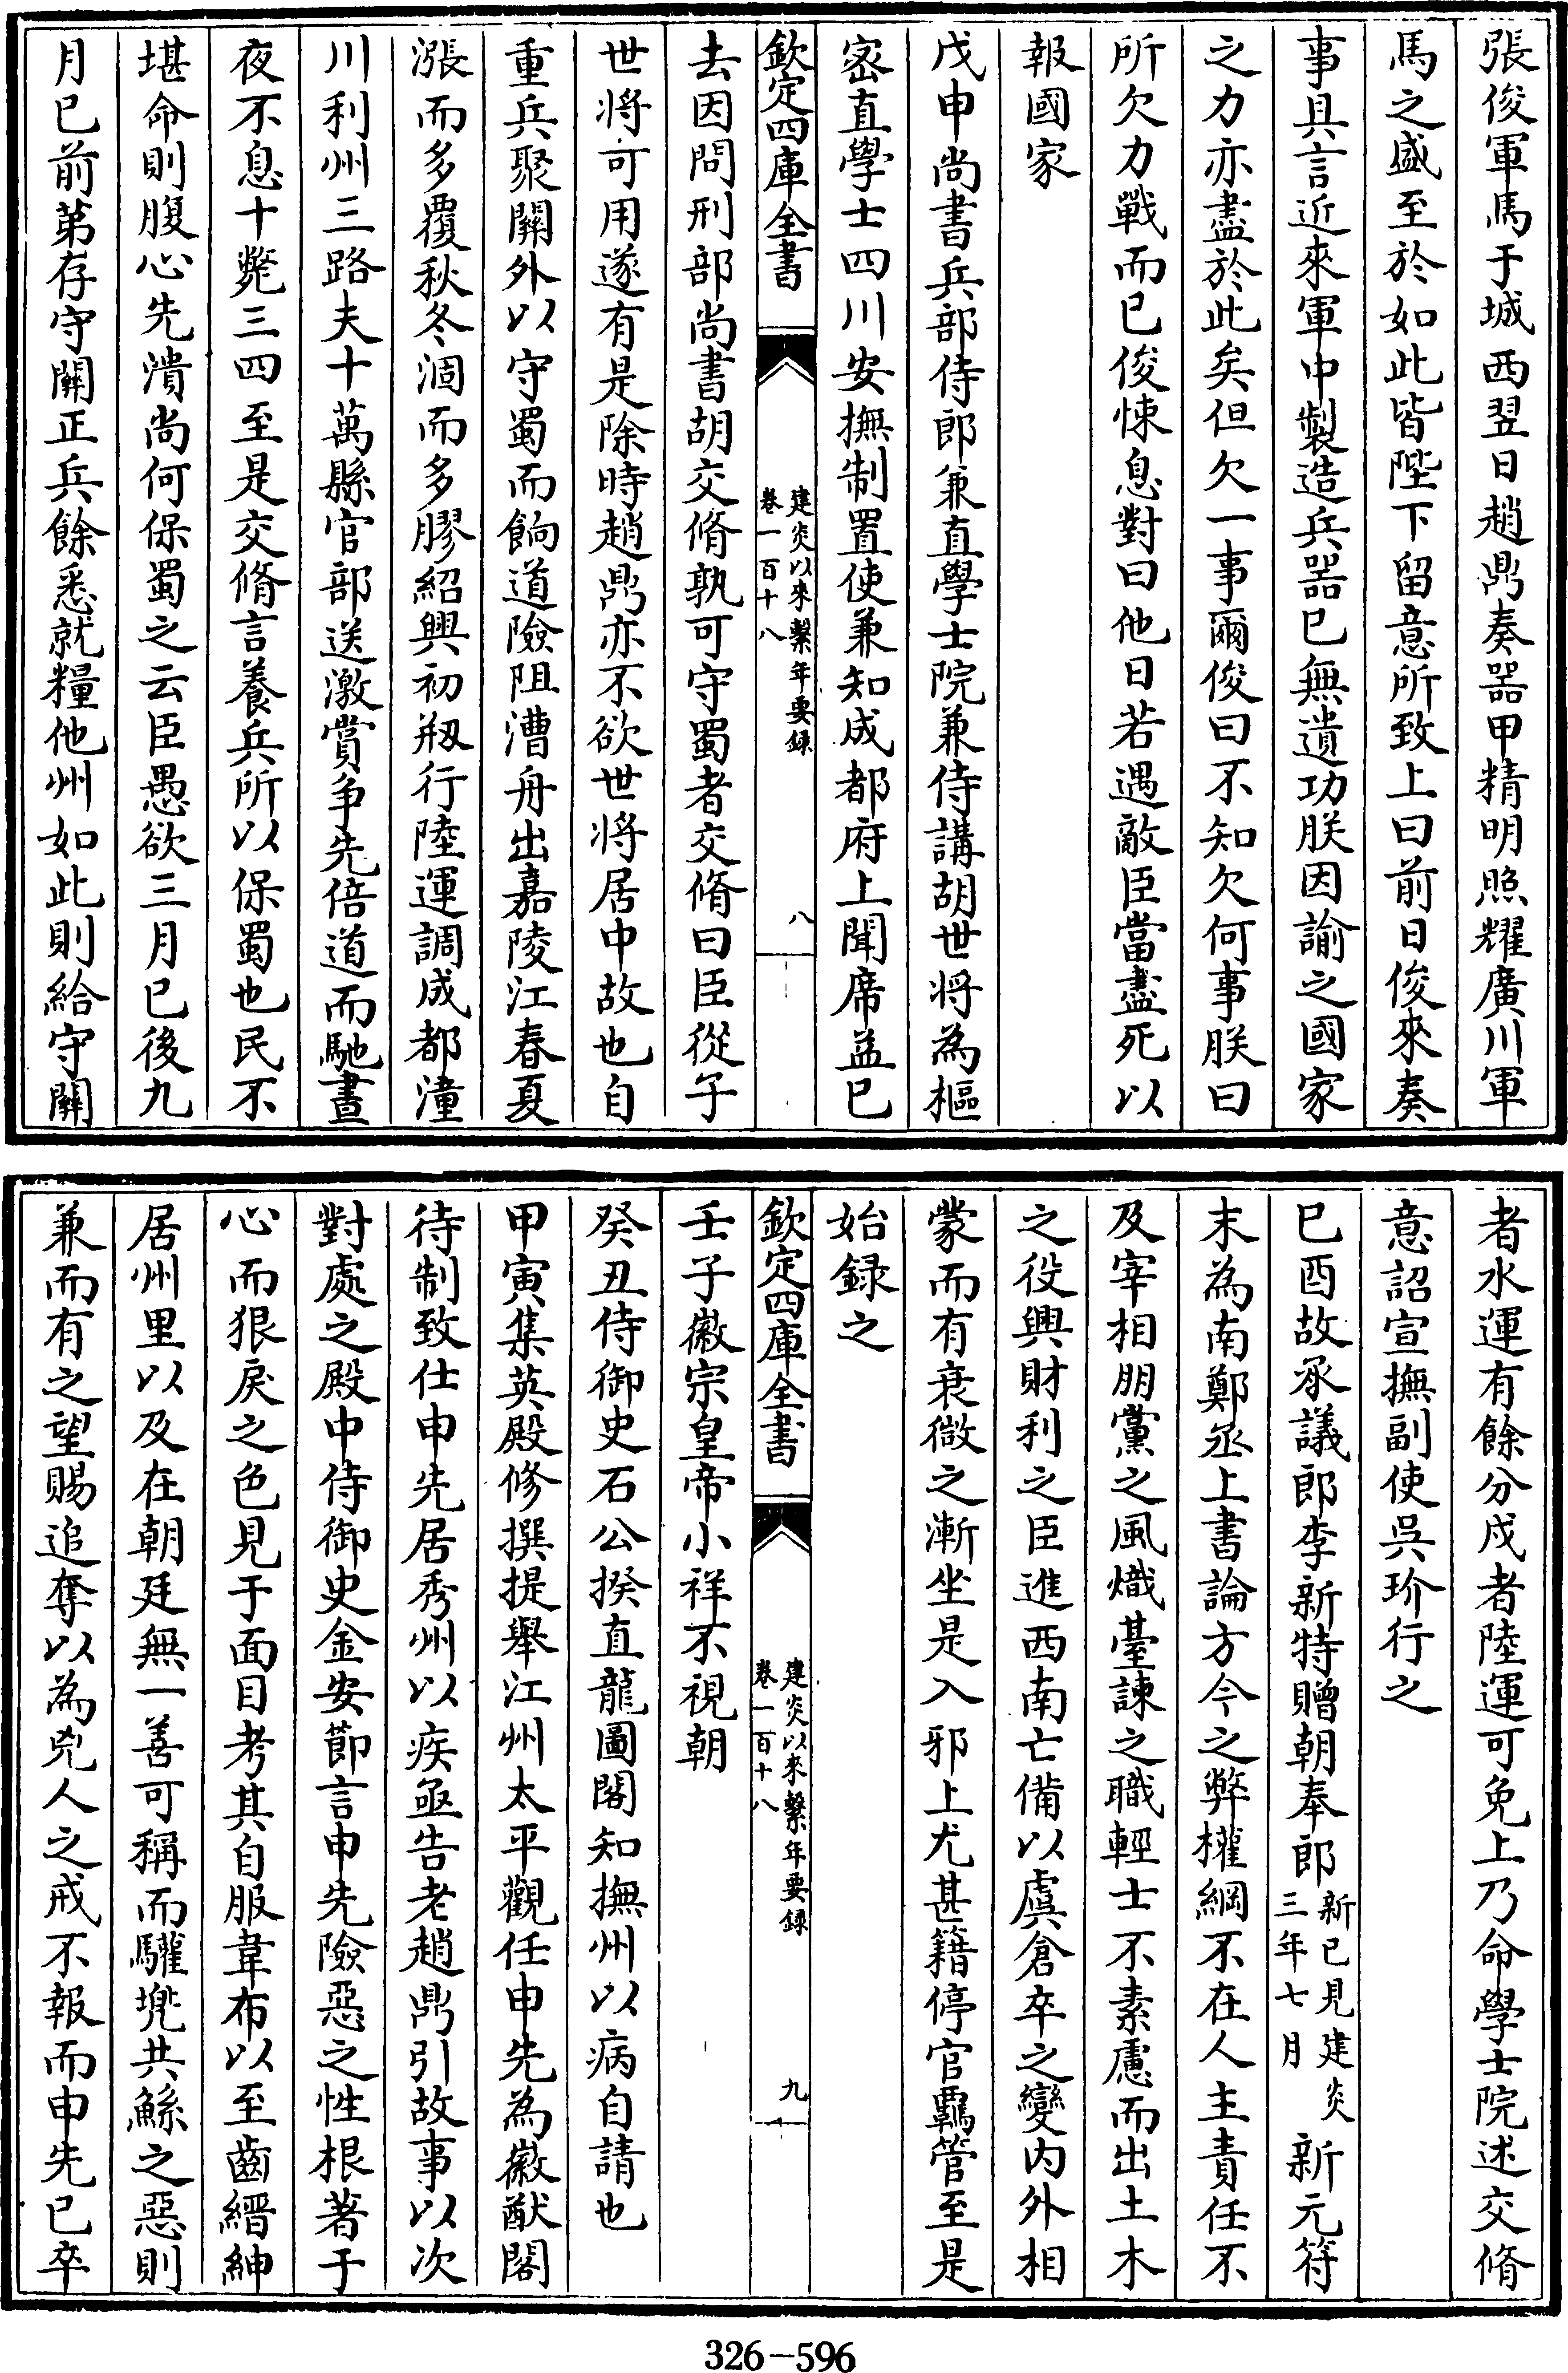 張俊軍馬于城西翌日趙鼎奏器甲精明照耀廣川軍
馬之盛至於如此皆陛下留意所致上曰前日俊來奏
事具言近來軍中製造兵器已無遺功朕因諭之國家
之力亦盡於此矣但欠一事爾俊曰不知欠何事朕曰
所欠力戰而已俊悚息對曰他日若遇敵臣當盡死以
報國家
戊申尚書兵部侍郎兼直學士院兼侍講胡世將為樞
密直學士四川安撫制置使兼知成都府上聞席益已
欽定四庫全書
建炎以來繫年要録
卷一百十八
八
去因問刑部尚書胡交脩孰可守蜀者交脩曰臣從子
世將可用遂有是除時趙鼎亦不欲世將居中故也自
重兵聚關外以守蜀而餉道險阻漕舟出嘉陵江春夏
漲而多覆秋冬涸而多膠紹興初剏行陸運調成都潼
川利州三路夫十萬縣官部送激賞争先倍道而馳晝
夜不息十斃三四至是交脩言養兵所以保蜀也民不
堪命則腹心先潰尚何保蜀之云臣愚欲三月已後九
月已前第存守關正兵餘悉就糧他州如此則給守關
者水運有餘分戍者陸運可免上乃命學士院述交脩
意詔宣撫副使吳玠行之
已酉故承議郎李新特贈朝奉郎新已見建炎三年七月新元符
末為南鄭丞上書論方今之弊權綱不在人主責任不
及宰相朋黨之風熾臺諫之職輕士不素慮而出土木
之役興財利之臣進西南亡備以虞倉卒之變内外相
蒙而有衰微之漸坐是入邪上尤甚籍停官羈管至是
始録之
欽定四庫全書
建炎以來繫年要録
卷一百十八
九
壬子徽宗皇帝小祥不視朝
癸丑侍御史石公揆直龍圖閣知撫州以病自請也
甲寅集英殿修撰提舉江州太平觀任申先為徽猷閣
待制致仕申先居秀州以疾亟告老趙鼎引故事以次
對處之殿中侍御史金安節言申先險惡之性根著于
心而狠戾之色見于面目考其自服韋布以至齒縉紳
居州里以及在朝廷無一善可稱而驩兠共鯀之惡則
兼而有之望賜追奪以為兇人之戒不報而申先已卒
326-596